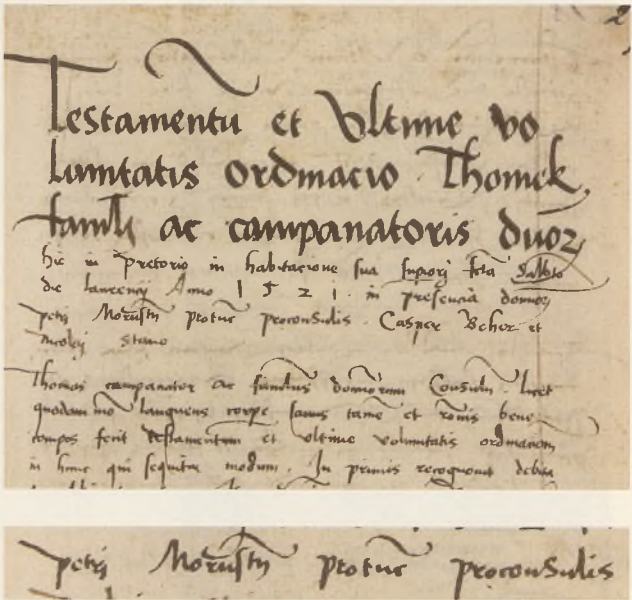 2
Testamentu et Vltime vo
luntatis ordinacio Thomek
famuli ac campanatoris duoꝝ
hic in Pretorio in habitacione sua superiori fcta Sabbto
die laurencij Anno 1521. in presencia dominoꝝ
petri protunc proconsulis Casper Beher et
Nicolej
Thomas campanator ac famulus dominorum Consulum licet
quodammo languens corpe sanus tame et rōnis bene
compos fecit Testamentum et vltime voluntatis ordinacionem
in hunc qui sequitur modum. In primis recognouit debita
petri protunc proconsulis